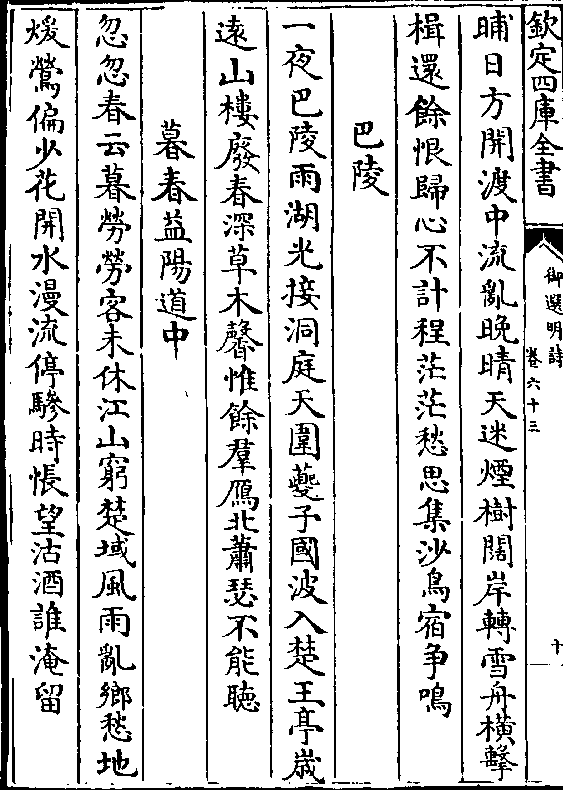 欽定四庫全書
御選明詩
卷六十三
十
晡日方開渡中流亂晚晴天迷煙樹闊岸轉雪舟橫擊
楫還餘恨歸心不計程茫茫愁思集沙鳥宿争鳴
巴陵
一夜巴陵雨湖光接洞庭天圍夔子國波入楚王亭歲
遠山樓廢春深草木馨惟餘羣鴈北蕭瑟不能聽
暮春益陽道中
忽忽春云暮勞勞客未休江山窮楚域風雨亂鄉愁地
煖鶯偏少花開水漫流停驂時悵望沽酒誰淹留